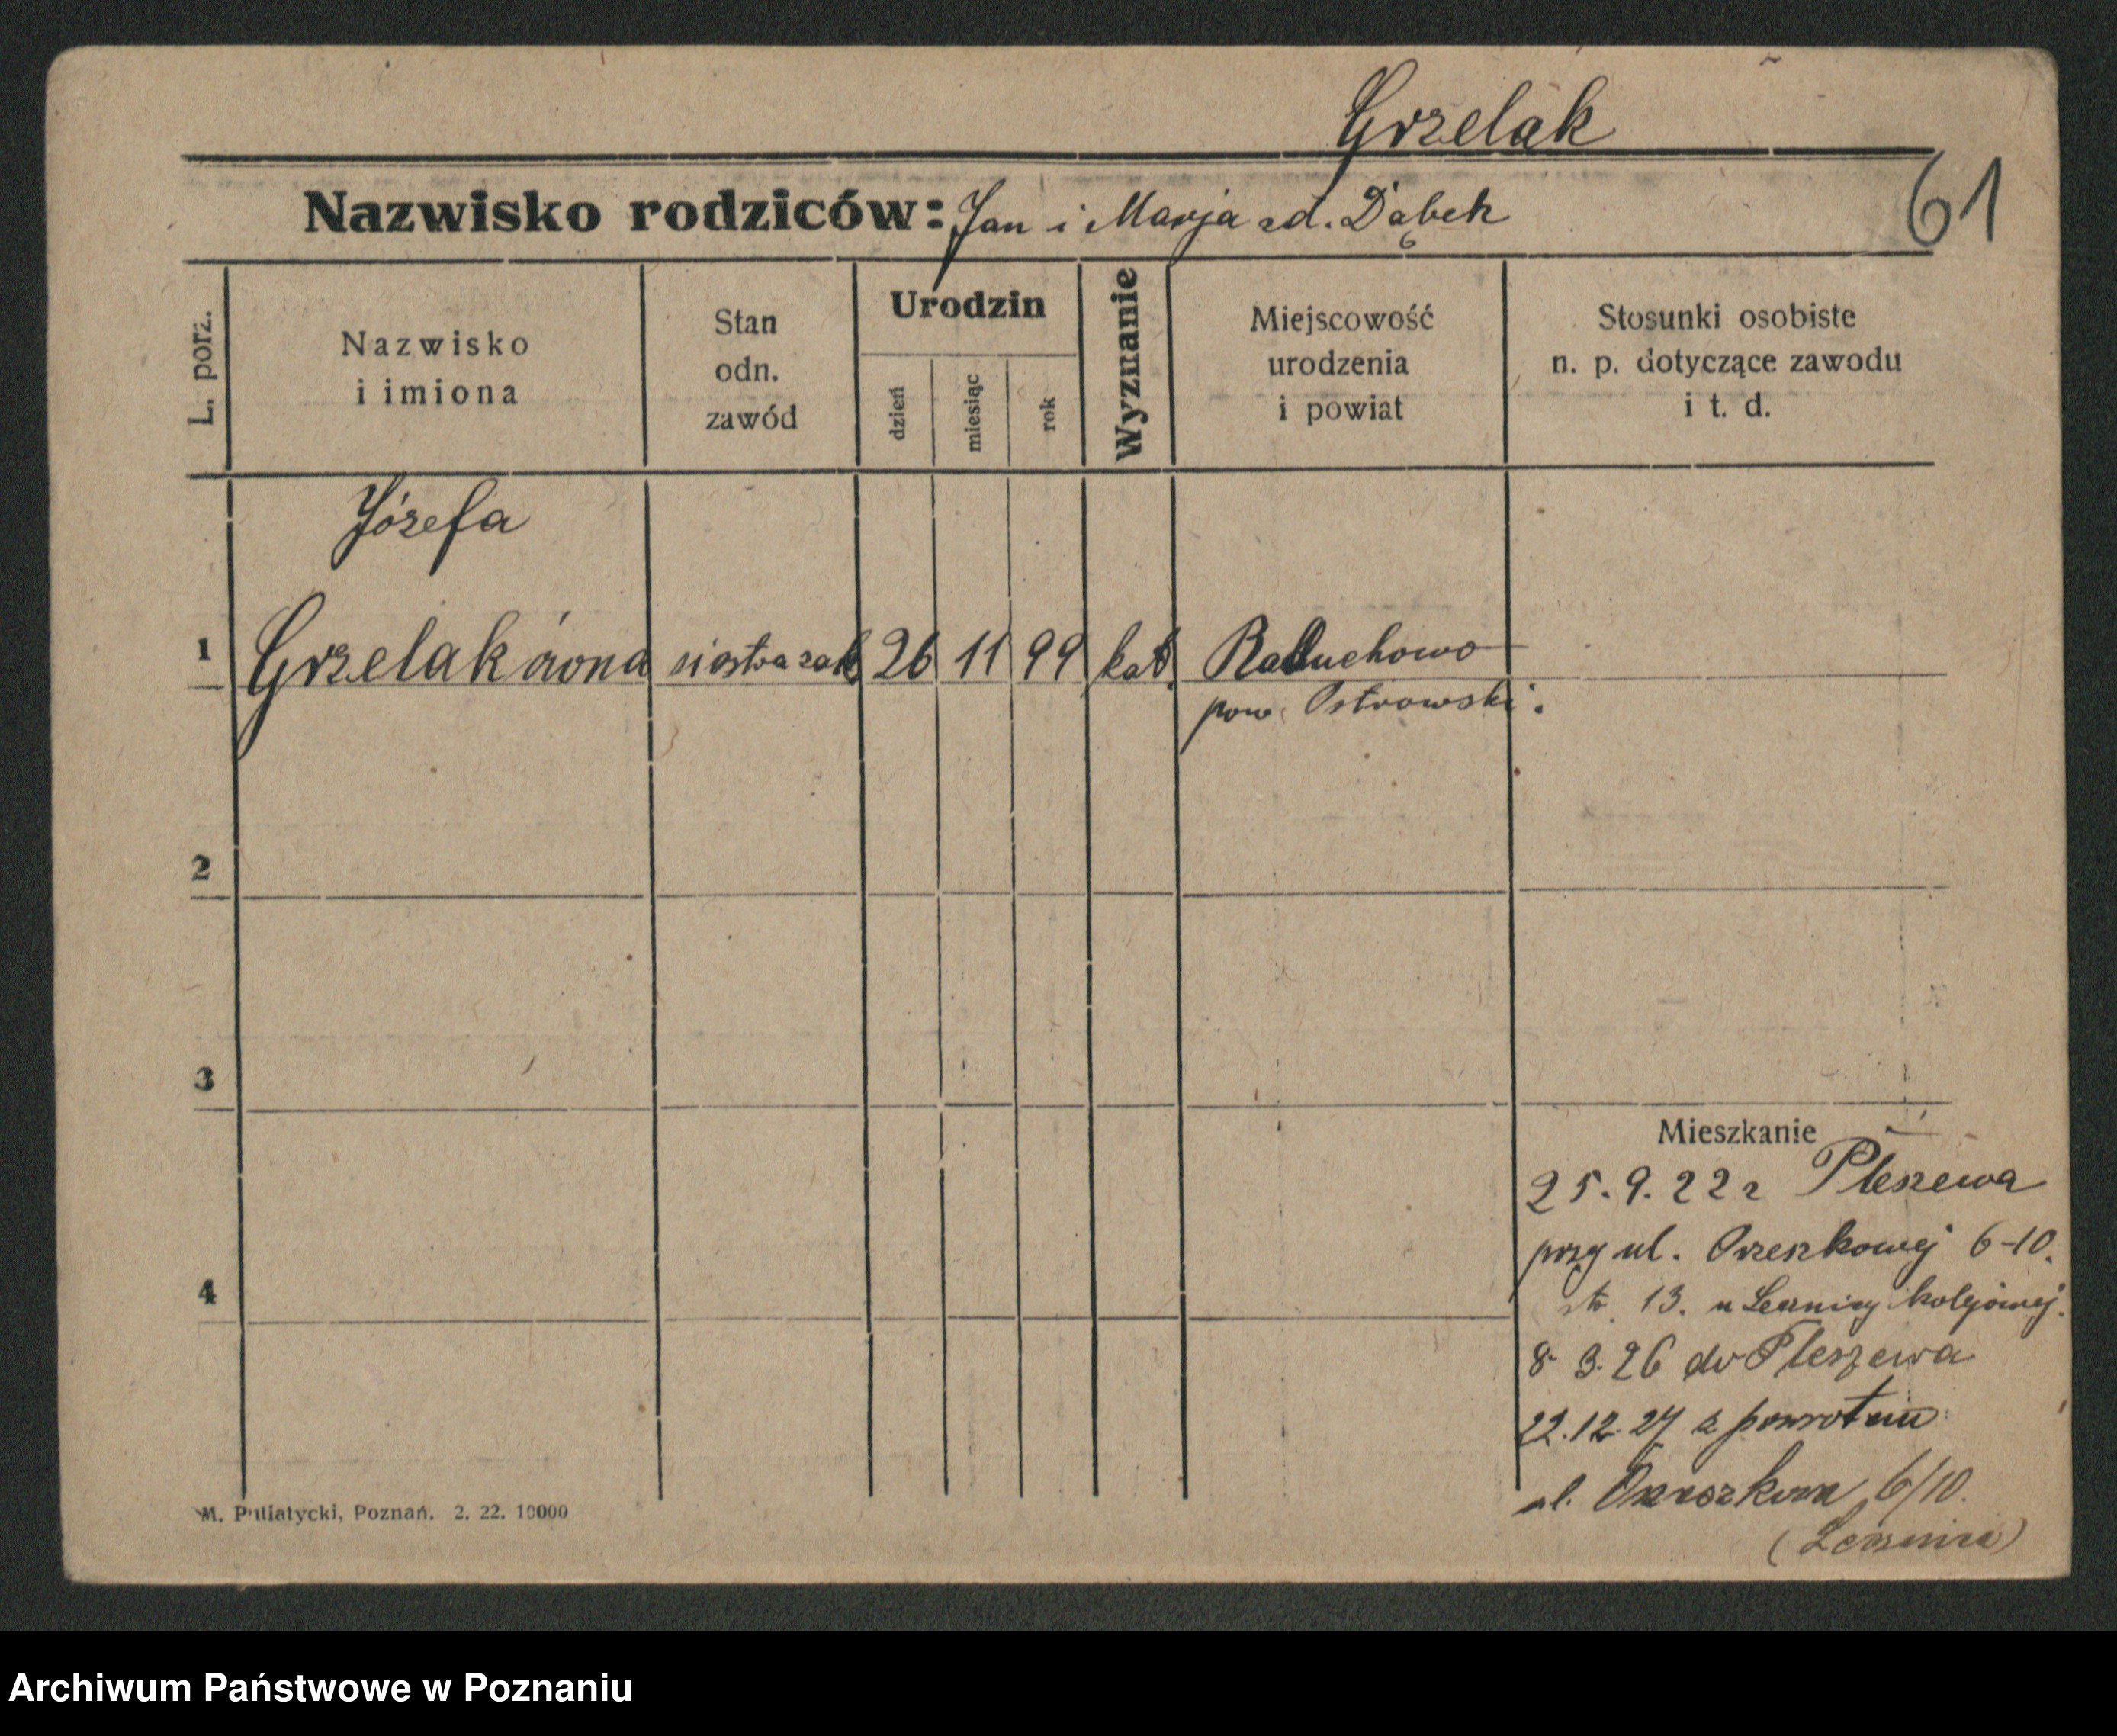 Grzelak
Nazwisko rodziców: Jan i Marja zd. Dąbek
61
L. porz.
Nazwisko
i imiona
Stan
odn.
zawód
Urodzin
dzień
miesiąc
rok
Wyznanie
Miejscowość
urodzenia
i powiat
Stosunki osobiste
n. p. dotyczące zawodu
i t. d.
Józefa
1 Grzelakówna siostra zak 26 11 99 kat. Raduchowo
pow. Ostrowski.
2
3
4
Mieszkanie
25.9.22 z Pleszewa
przy ul. Orzeszkowej 6-10.
13. u Lecznicy kolejowej.
8 3.26 do Pleszewa
22.12.27 z powrotem
ul. 6/10.
(Lecznica)
M. Putiatycki, Poznań. 2. 22. 10000
Archiwum Państwowe w Poznaniu